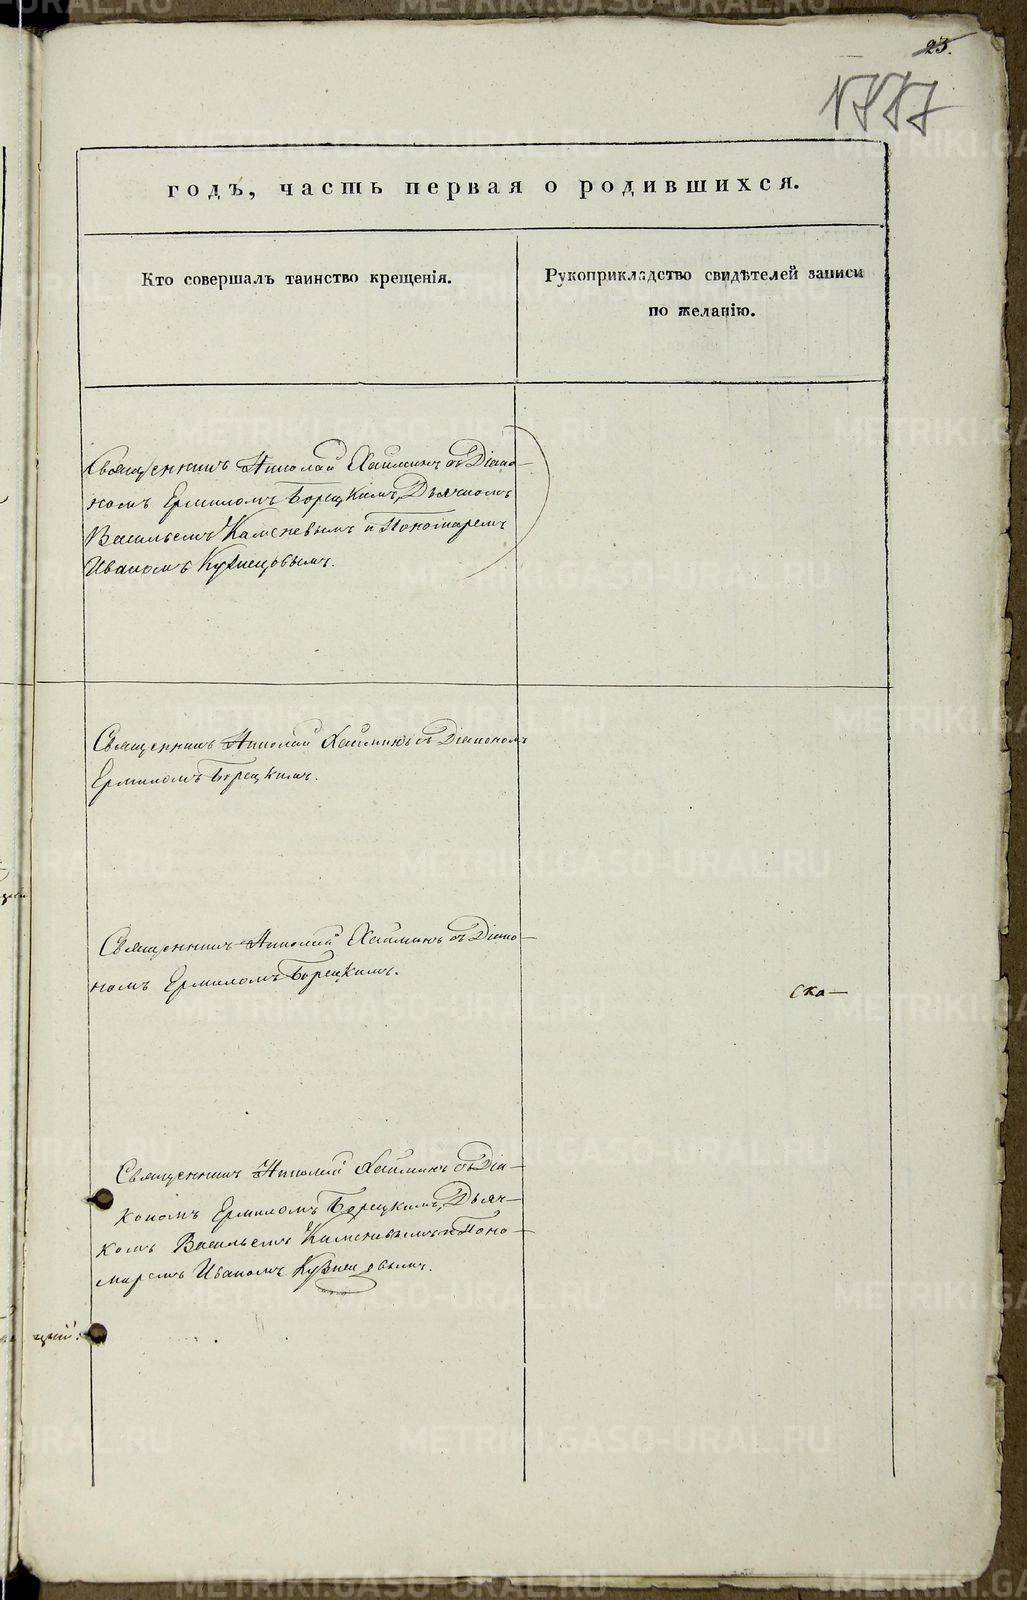 23.
1777
годъ, часть первая о родившихся.
Кто совершалъ таинство крещенія.
Рукоприкладство свидѣтелей записи
по желанію.
Священникъ Николай Хлынинъ съ Діако-
номъ Ермиломъ Борецкимъ, Дьячкомъ
Васильемъ Каменевымъ и Пономаремъ
Иваномъ Кузнецовымъ.
Священникъ Николай съ Діакономъ
Ермиломъ Борецкимъ.
Священникъ Николай съ Діако-
номъ Ермиломъ Борецкимъ.
ска-
Священникъ Николай съ Діа-
кономъ Ермиломъ Борецкимъ, Дьяч-
комъ Васильемъ Каменевымъ и Поно-
маремъ Иваномъ Кузнецовымъ.
METRIKI.GASO-URAL.RU